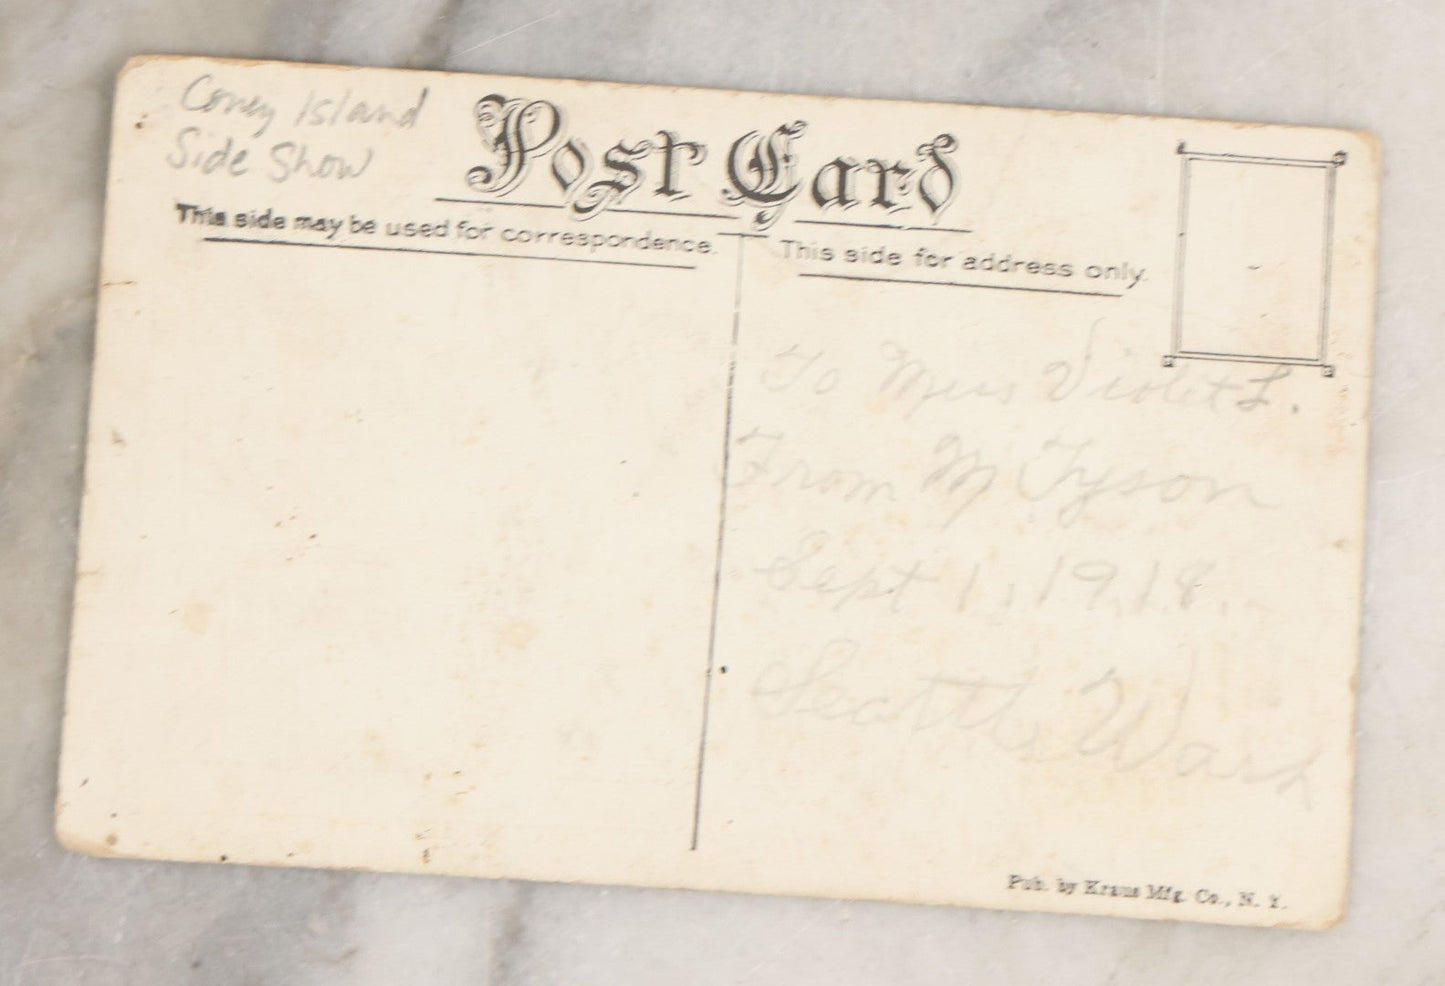 Coney Island
Side Show
Post Card
This side may be used for correspondence.
This side for address only.
To Miss Violet L.
From M Tyson
Sept 1, 1918.
Seattle Wash
Pub. by Kraus Mfg. Co., N. Y.